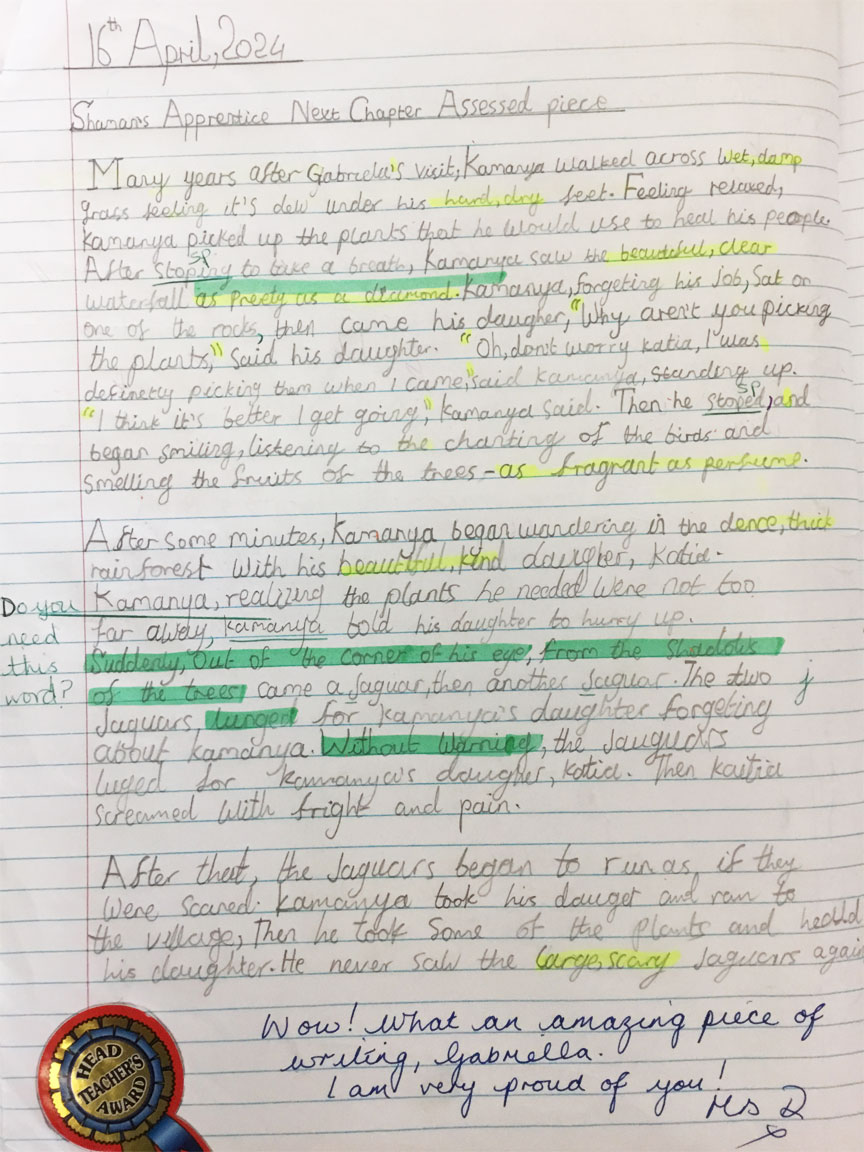 16th April, 2024
Shaman's Apprentice Next Chapter Assessed piece
Many years after Gabriela's visit, Kamanya walked across wet, damp
grass feeling it's dew under his hard, dry feet. Feeling relaxed,
Kamanya picked up the plants that he would use to heal his people.
sp
After stoping to take a breath, Kamanya saw the beautiful, clear
waterfall as preety as a diamond. Kamanya, forgeting his job, sat on
one of the rocks, then came his daugher, "Why aren't you picking
the plants," said his daughter. "Oh, don't worry katia, I was
definetly picking them when I came," said Kamanya, standing up.
sp
"I think it's better I get going," Kamanya said. Then he stoped, and
began smiling, listening to the chanting of the birds and
smelling the fruits of the trees - as fragrant as perfume.
After some minutes, Kamanya began wandering in the dence, thick
rainforest with his beautiful, kind daugher, Katia.
Do you need this word?
Kamanya, realizing the plants he needed were not too
far away, kamanya told his daughter to hurry up.
Suddenly, out of the corner of his eye, from the shadows
of the trees came a Jaguar, then another Jaguar. The two
j
Jaguars lunged for Kamanya's daughter forgeting
about kamanya. Without warning, the Jauguars
luged for kamanya's daugher, katia. Then kaitia
screamed with fright and pain.
After that, the Jaguars began to run as if they
were scared. Kamanya took his dauget and ran to
the village, Then he took some of the plants and
his daughter. He never saw the large, scary Jaguars again
Wow! What an amazing piece of
writing, Gabriella.
I am very proud of you!
Ms R
HEAD
TEACHER'S
AWARD